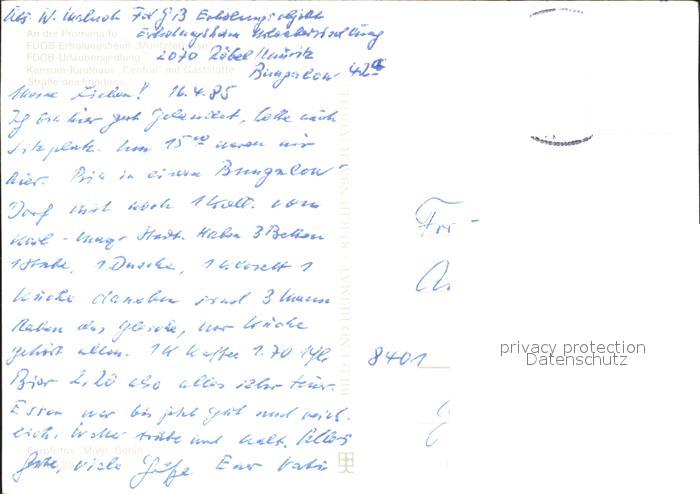 Abs. W.
An der Promenade
FDGB-Erholungsheim "Müritzterrasse"
FDGB-Urlaubersiedlung
Konsum-Kaufhaus "Central" mit Gaststätte
Straße des Friedens
FDGB Erholungsobjekt
Erholungsheim Urlaubersiedlung
2070 Röbel/Müritz
Bungalow 42a
Meine Lieben! 16.4.85
Ich bin hier gut Gelandet, hatte auch
Sitzplatz. Um 15 00 waren wir
hier. Bin in einem Bungalow
Dorf mit noch 1 Koll. vom
Karl-Marx Stadt. Haben 3 Betten
1 Stube, 1 Dusche, 1 Klosett 1
Küche daneben sind 3 Mann
Haben das Gleiche, nur Küche
gehört allen. 1 K Kaffee 1.70
Bier 2,20 also alles sehr teuer.
Essen war bis jetzt gut und reich
lich. Wetter trübe und kalt. Alles
Gute, viele Grüße Euer Vati
Reprofotos: Mohr, Berlin
BILD UND HEIMAT · REICHENBACH (VOGTL)
8401
privacy protection
Datenschutz